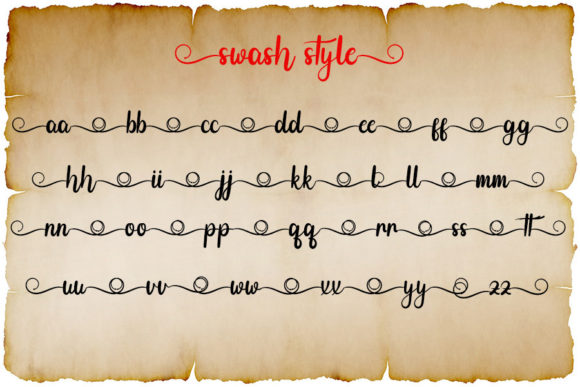 swash style
aa bb cc dd ee ff gg
hh ii jj kk t ll mm
nn oo pp qq rr ss tt
uu vv ww xx yy zz